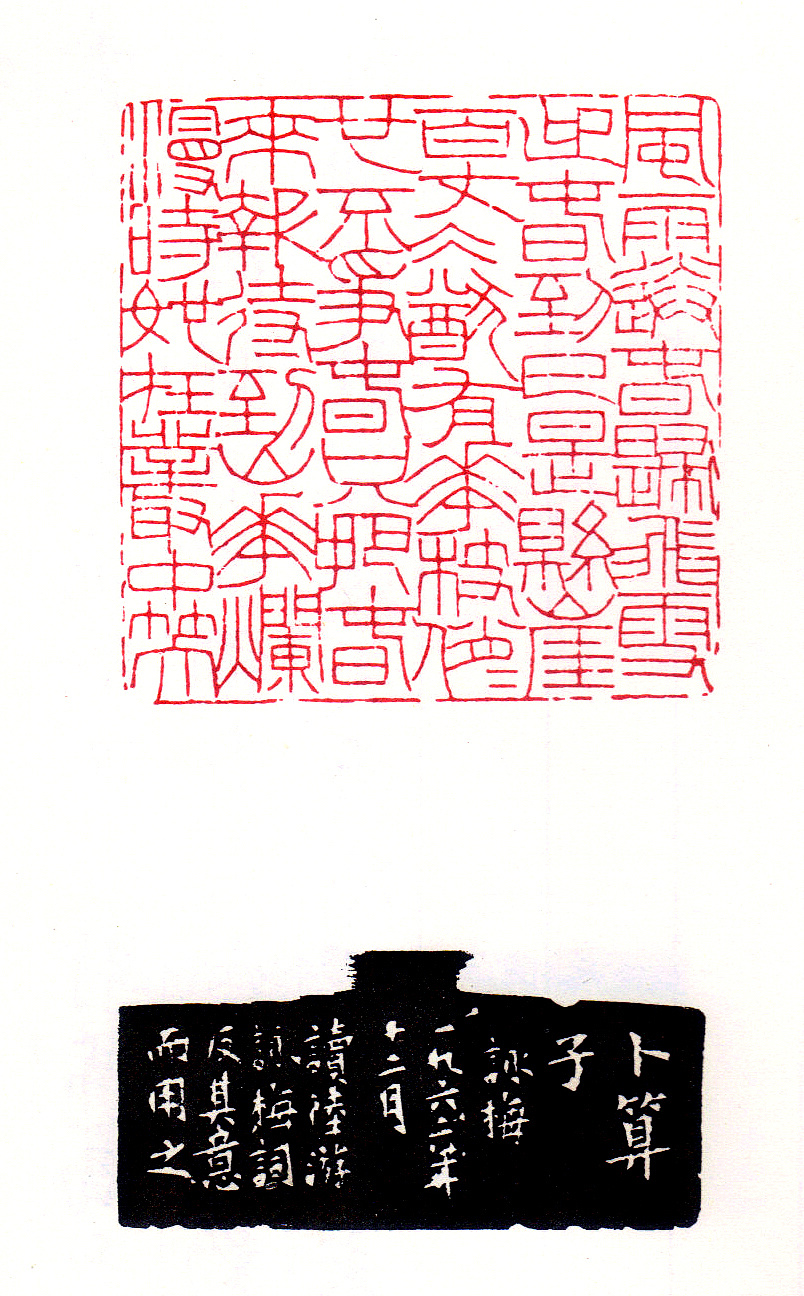 風雨送春歸飛雪
迎春到已是懸崖
百丈冰猶有華枝俏〻
也不爭春只把春
來報待到山華爛
漫時她在叢中笑
卜算
子
詠梅
一九六二年
十二月
讀陸游
詠梅詞
反其意
而用之